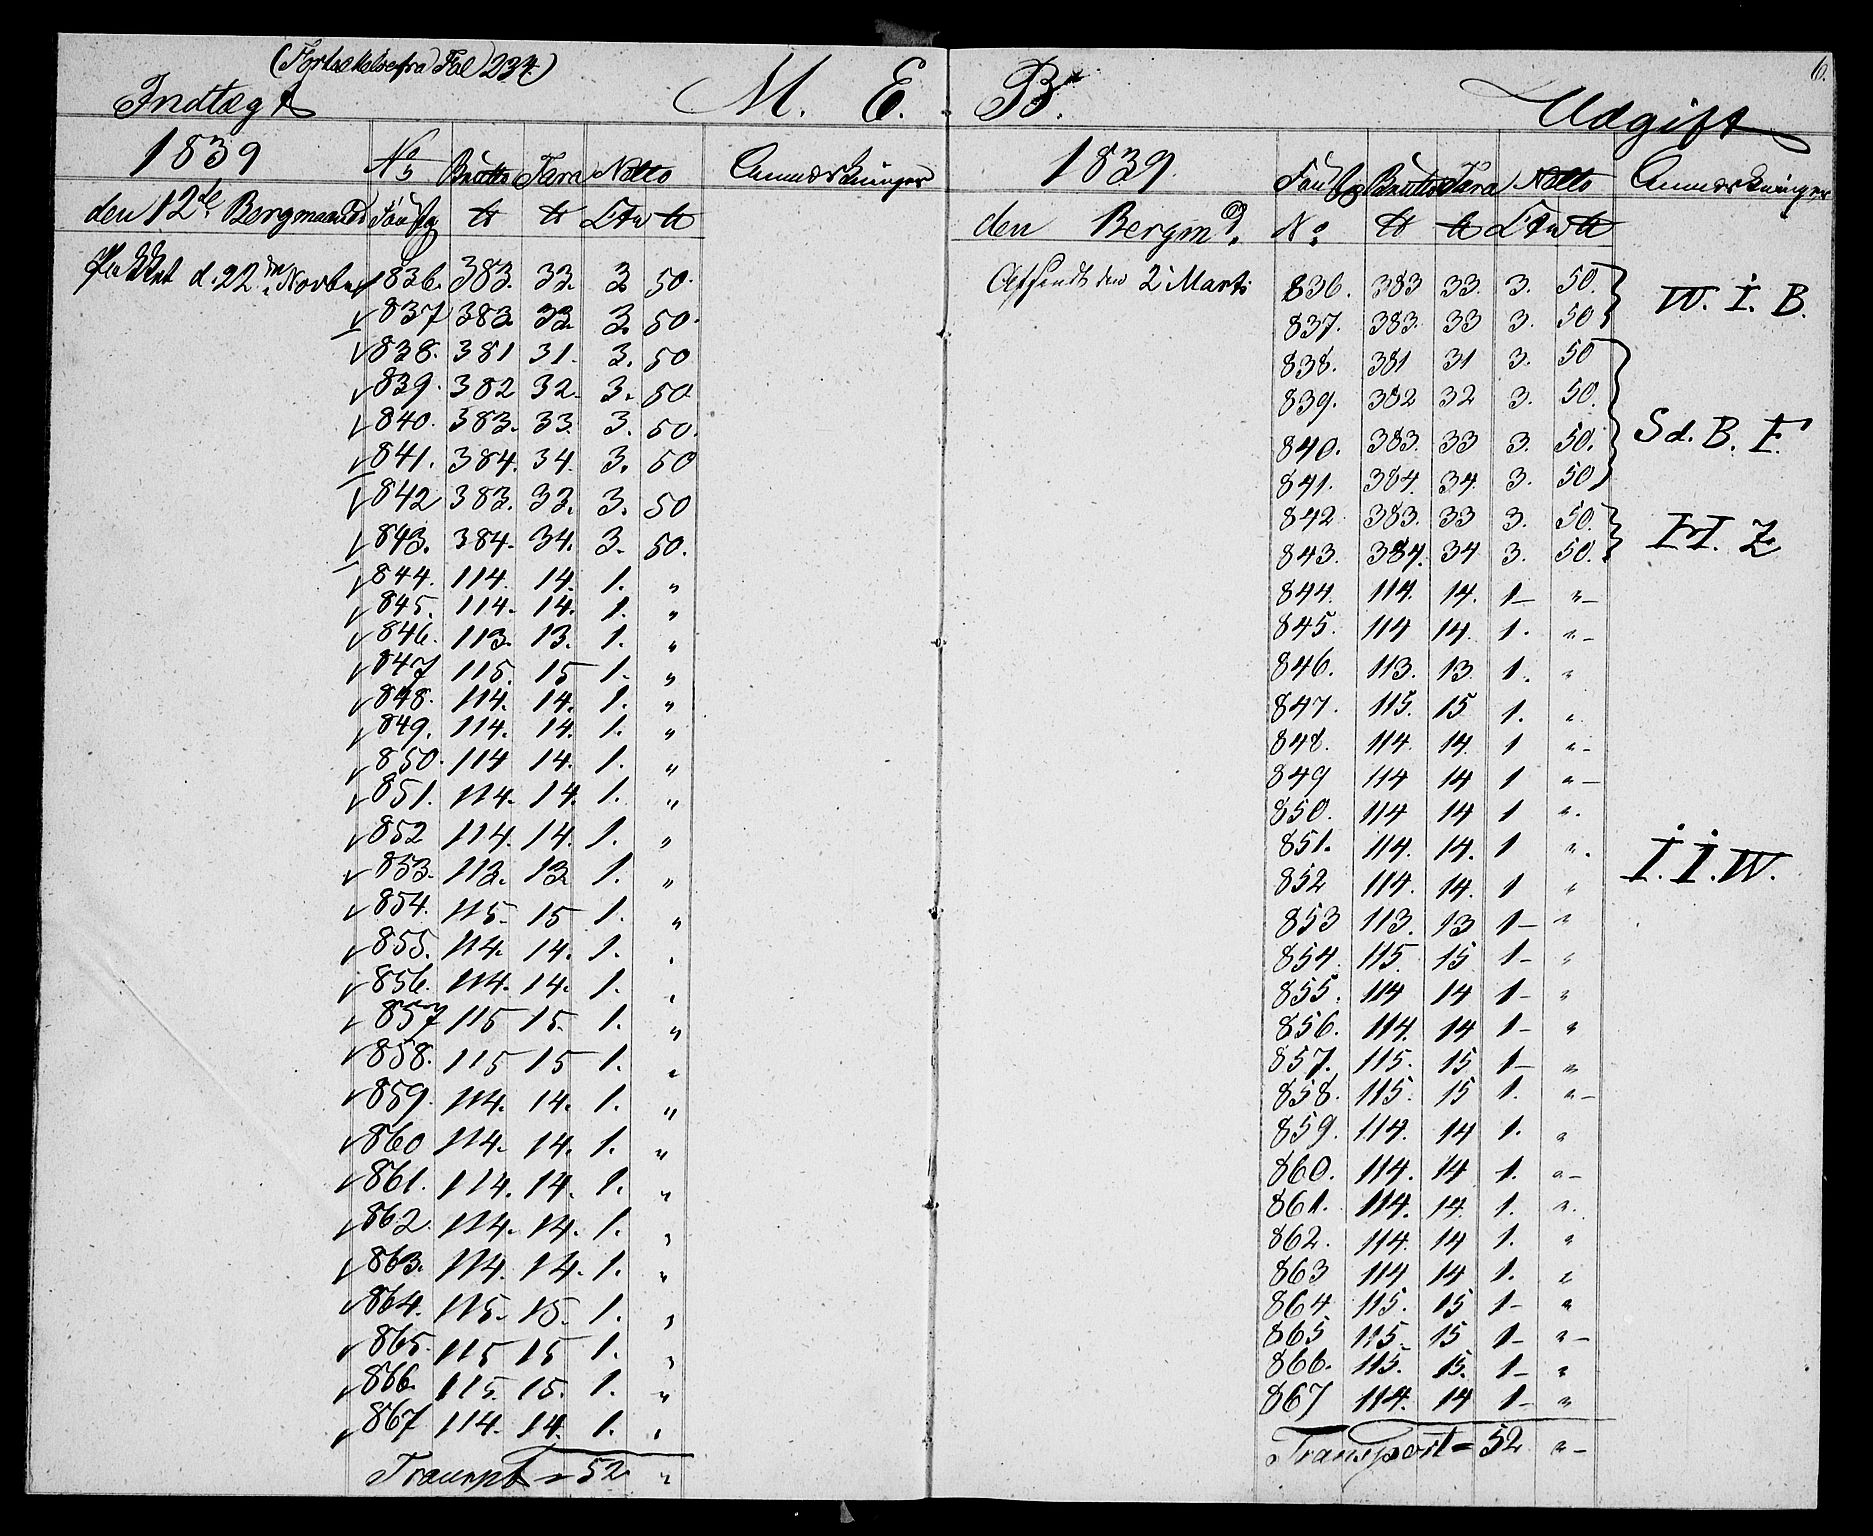 (Fortsættelse fra Fol 234.)
Indtægt M. E.
1839 No Brutto Tara Netto Anmærkninger
den 12te Bergmaaned Fustg ℔ ℔ Ctn ℔
pakket d. 22 Novbr 836. 383. 33. 3. 50.
837 383. 33. 3. 50.
838. 381 31. 3. 50
839. 382 32. 3. 50
840. 383. 33. 3. 50.
841. 384. 34. 3. 50
842 383. 33. 3. 50
843. 384. 34. 3. 50.
844. 114. 14. 1. "
845. 114. 14. 1. "
846. 113. 13. 1. "
847 115. 15 1. "
848. 114. 14. 1. "
849. 114. 14. 1. "
850. 114 14. 1. "
851. 114. 14. 1. "
852 114. 14. 1. "
853. 113. 13 1. "
854. 115. 15 1. "
855. 114. 14. 1. "
856. 114. 14. 1. "
857 115 15. 1. "
858. 115 15 1. "
859. 114. 14. 1. "
860 114. 14. 1. "
861. 114. 14. 1. "
862. 114. 14. 1. "
863. 114. 14. 1. "
864. 115. 15. 1. "
865. 115 15 1. "
866. 115. 15. 1. "
867 114. 14. 1. "
Transpt = 52 "
6.
B. Udgift
1839. Fustg Brutto Tara Netto Anmærkninger
den Bergmd. No. ℔ ℔ Ctn ℔
Afsendt den 2 Marts 836. 383 33. 3. 50. W. I. B.
837. 383. 33 3. 50
838. 381 31 3. 50
839. 382 32 3. 50. Sd. B. F.
840. 383. 33 3. 50.
841. 384. 34. 3. 50
842 383. 33 3. 50. H. Z
843. 384. 34 3. 50.
844. 114. 14. 1 "
845. 114 14. 1. "
846. 113. 13. 1. "
847. 115. 15 1. "
848. 114. 14. 1 "
849 114 14 1 "
850. 114 14 1 "
851. 114. 14. 1 " I. I. W.
852 114. 14. 1 "
853 113. 13 1 "
854. 115. 15 1 "
855. 114 14 1 "
856. 114. 14 1 "
857. 115. 15 1 "
858. 115. 15 1. "
859. 114. 14 1. "
860. 114. 14 1. "
861. 114. 14. 1. "
862. 114. 14 1. "
863 114 14. 1. "
864 115. 15 1 "
865 115. 15 1 "
866. 115. 15. 1 "
867 114. 14 1 "
Transport = 52. "